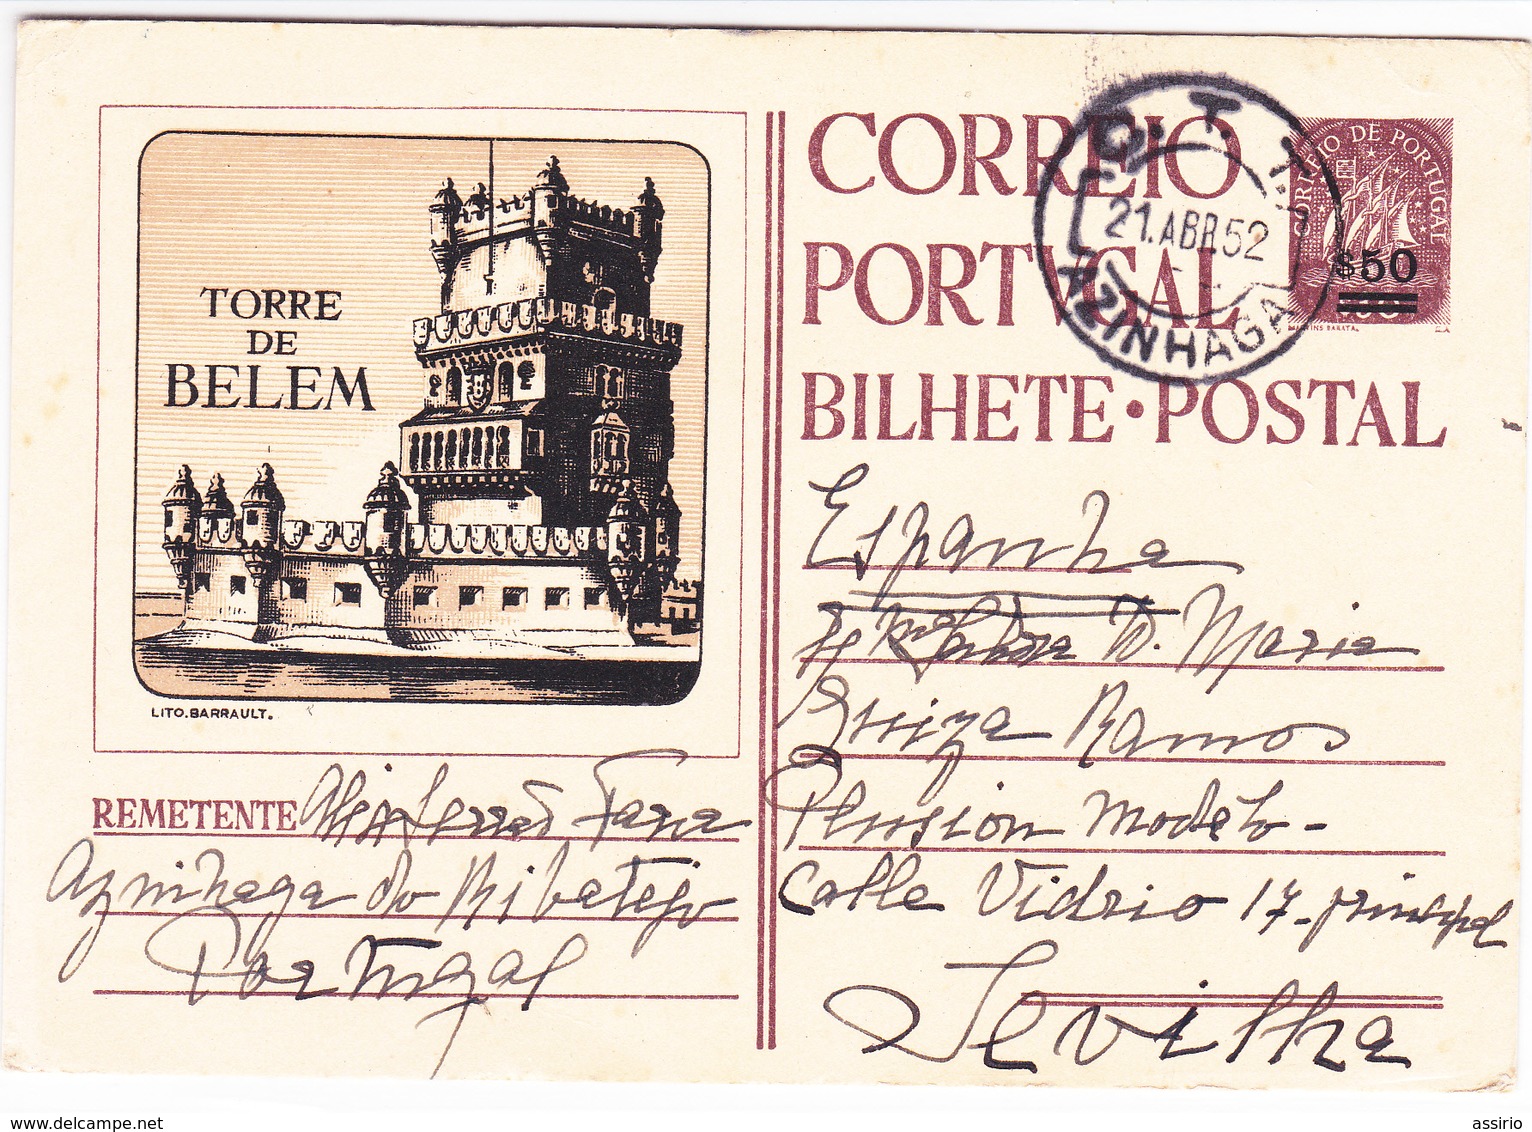 CORREIO
PORTVGAL
BILHETE • POSTAL
C. T. T.
21.ABR.52
AZINHAGA
CORREIO DE PORTUGAL
$50
MARTINS BARATA
TORRE
DE
BELEM
LITO.BARRAULT.
Espanha
D. Maria
Luiza Ramos
Pension Modelo -
Calle Vidrio 17-principal
Sevilha
REMETENTE
Azinhaga do Ribatejo
Portugal
www.delcampe.net
assirio